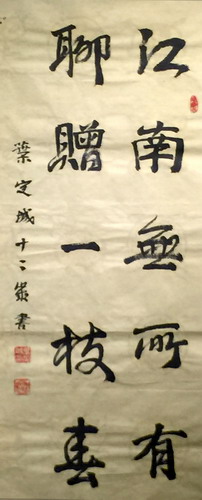 江南無所有
聊贈一枝春
葉定城十二歲書